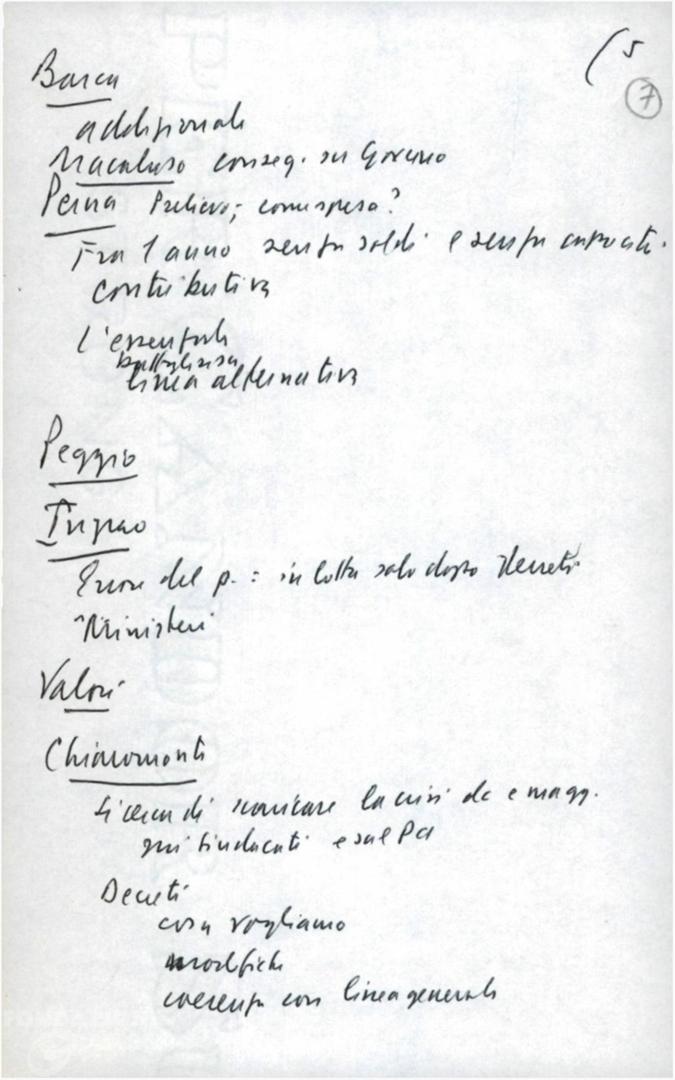 (5
7
Barca
addizionale
Macaluso conseg. su Governo
Perna Prelievo; come speso?
Fra 1 anno senza soldi e senza capacità
contributiva
L'essenziale
battaglia su
linea alternativa
Peggio
Trivelli
Errore del p.: in lotta solo dopo decreti
Ministeri
Valori
Chiaromonte
Si cerca di scaricare la crisi dc e magg.
sui sindacati e sul Pci
Decreti
cosa vogliamo
modifiche
coerenza con linea generale